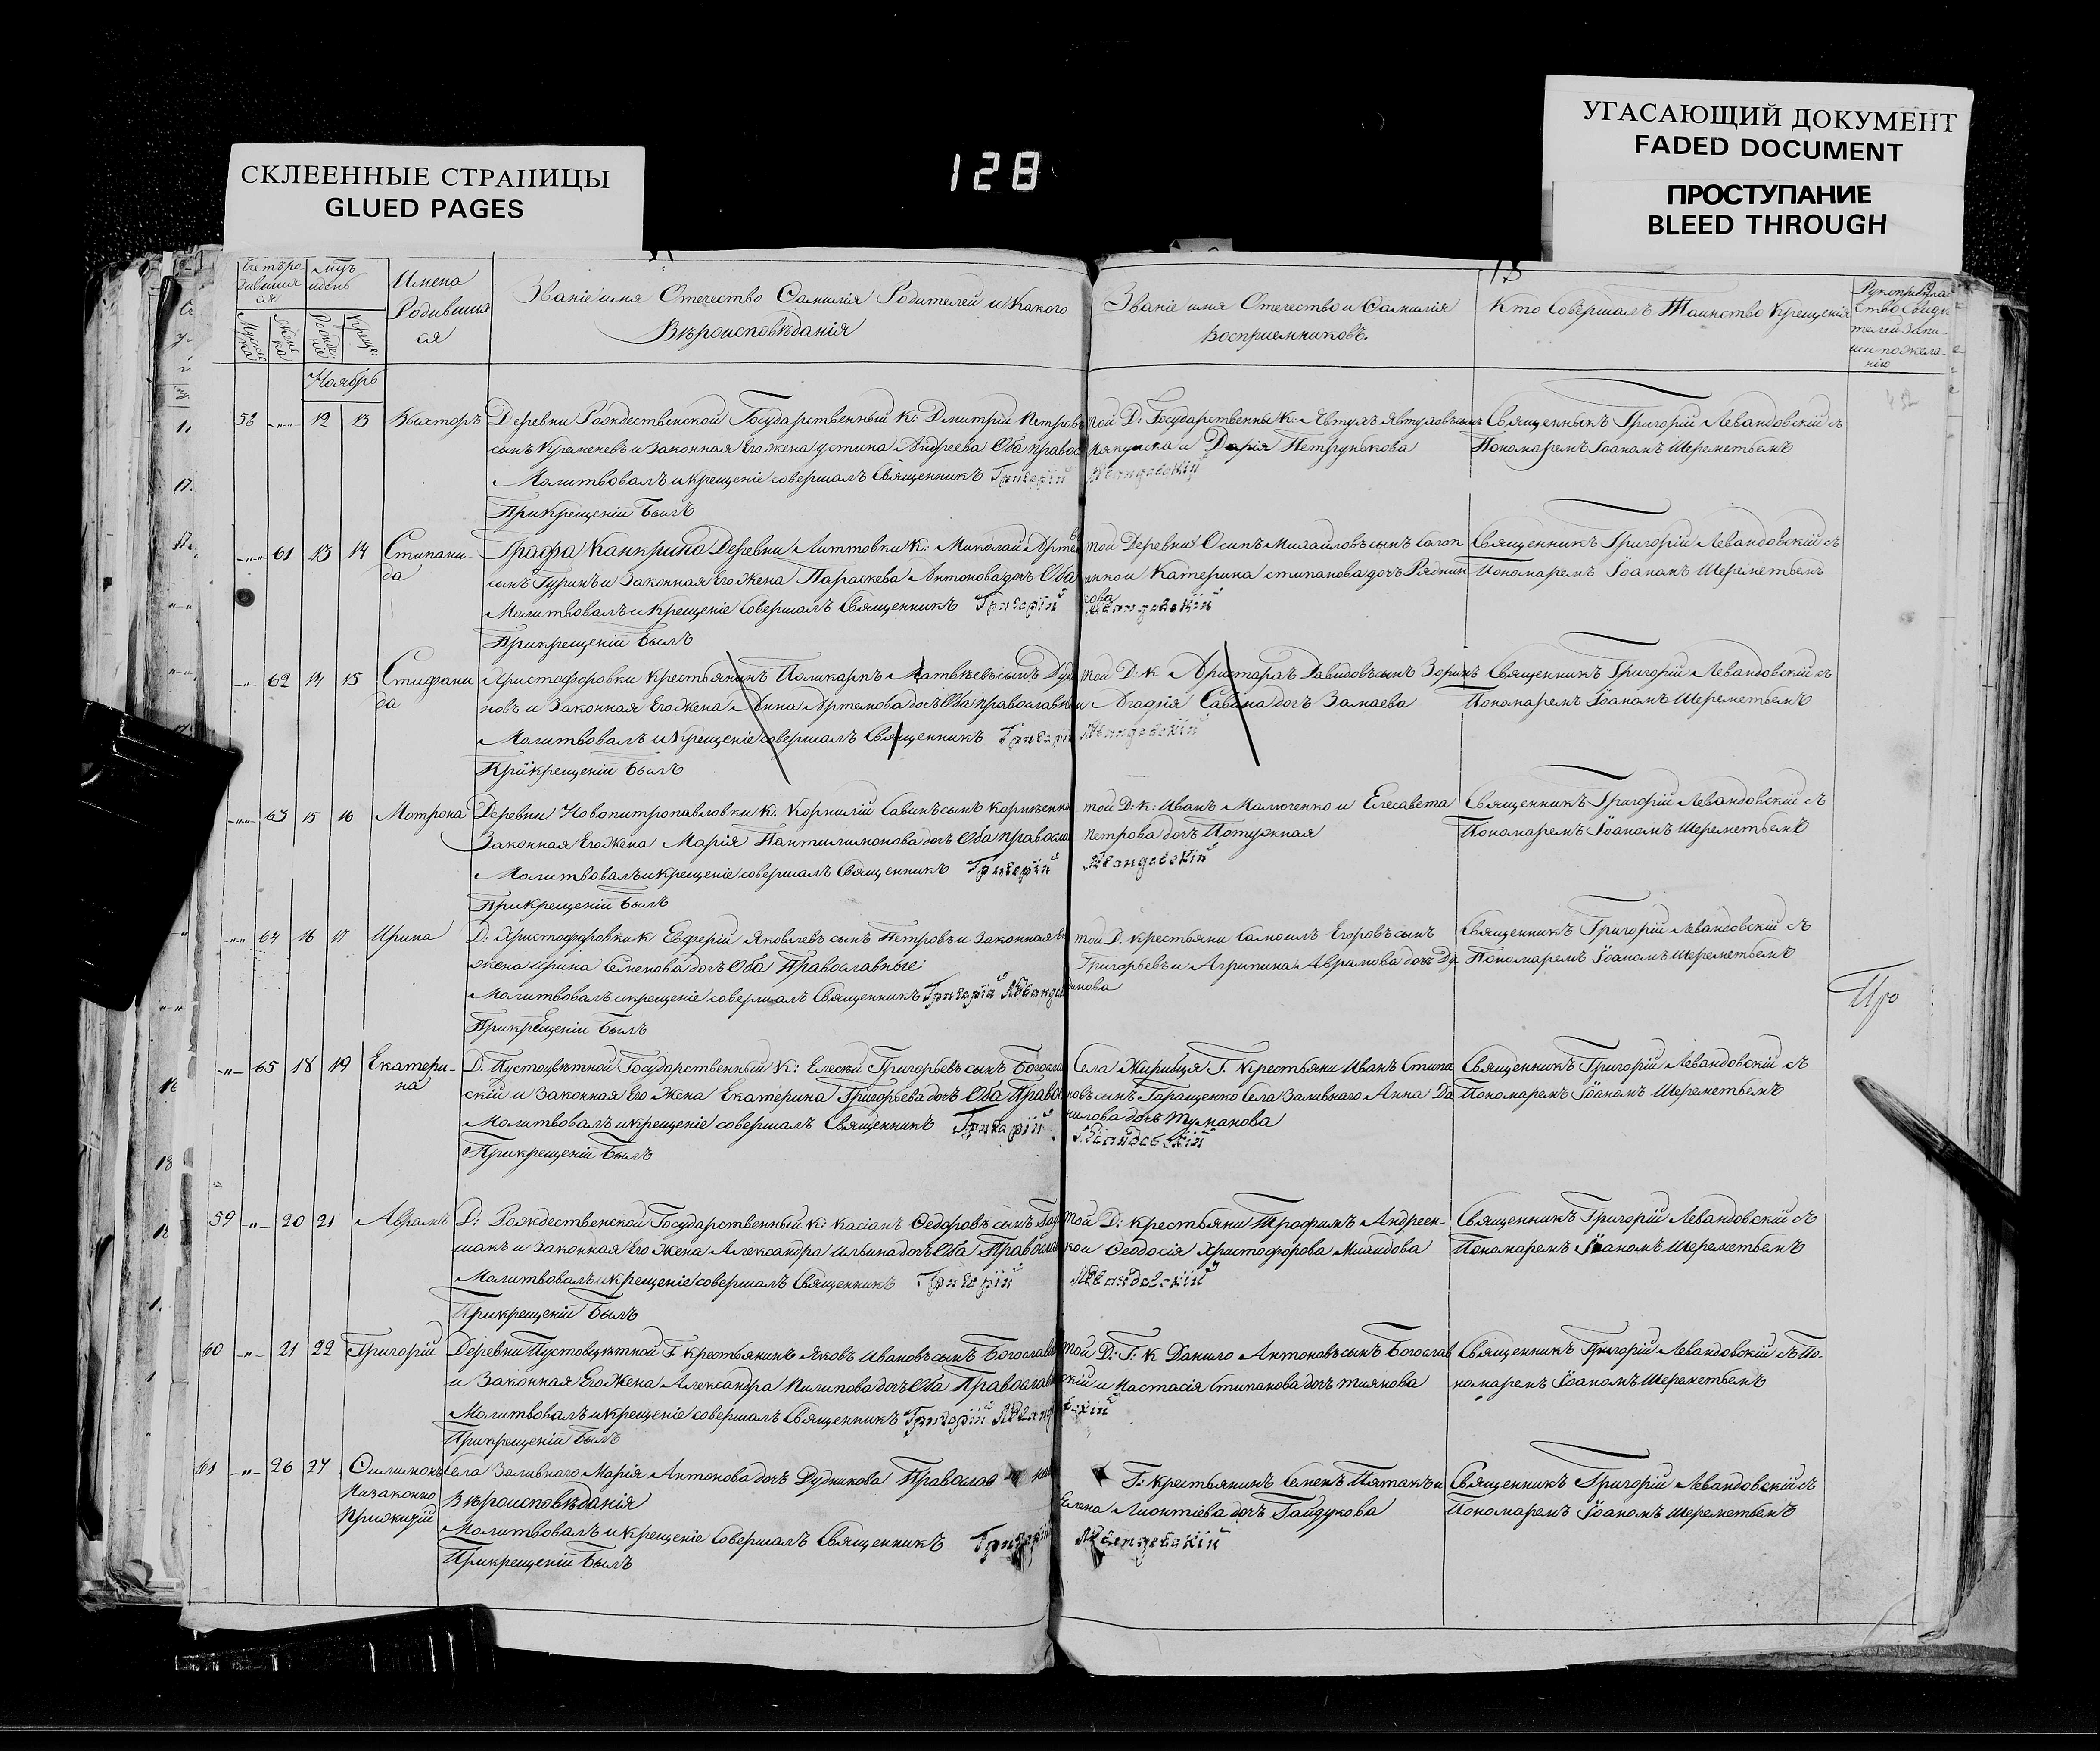 СКЛЕЕННЫЕ СТРАНИЦЫ
GLUED PAGES
128
УГАСАЮЩИЙ ДОКУМЕНТ
FADED DOCUMENT
ПРОСТУПАНИЕ
BLEED THROUGH
Имена
Родивших
ся
Званіе имя Отечество Фамилія Родителей и Какого
Вѣроисповѣданія
Званіе имя Отечество и Фамилія
Восприемниковъ.
Кто Совершалъ Таинство Крещенія
Ноябрь
58 12 13 Викторъ Деревни Рождественской Государственный К: Дмитрій Петровъ
сынъ Кременевъ и Законная Его жена Устина Андреева Оба правос
Молитвовалъ и крещеніе совершалъ Священникъ Григорій
Прикрещеніи былъ
той Д: Государственны К:
и Дарія Петрунькова
Священникъ Григорій Левандовскій съ
Пономаремъ Іоаномъ Шереметьемъ
61 13 14 Стипани-
да
Графа Канкрина Деревни Литтовки К: Миколай Арте
сынъ Гуринъ и Законная Его Жена Параскева Антонова доч Оба
Молитвовалъ и крещеніе Совершалъ Священникъ Григорій
Прикрещеніи былъ
той Деревни Осипъ Михайловъ сынъ
Катерина стипанова доч
кова
Левандовскій
Священникъ Григорій Левандовскій съ
Пономаремъ Іоаномъ Шереметьемъ
62 14 15 Стифани
да
Христофоровки крестьянинъ Поликарпъ Матвѣевъ сынъ Дуд
новъ и Законная Его жена Анна Артемова доч Оба православн
Молитвовалъ и Крещеніе совершалъ Священникъ Григорій
Прикрещеніи былъ
той Д: К Давидовъ сынъ Зоринъ
и Агафія Савина доч Замаева
Левандовскій
Священникъ Григорій Левандовскій съ
Пономаремъ Іоаномъ Шереметьемъ
63 15 16 Мотрона Деревни Новопитропавловки К. Корнилій Савинъ сынъ Корнѣенко
Законная Его Жена Марія Пантилимонова доч Оба Правосла
Молитвовалъ и крещеніе совершалъ Священникъ Григорій
Прикрещеніи былъ
той Д: К: Иванъ Малюченко и Елесавета
Петрова доч Потужная
Левандовскій
Священникъ Григорій Левандовскій съ
Пономаремъ Іоаномъ Шереметьемъ
64 16 17 Ирина Д: Христоффоровки К Евферій Яковлевъ сынъ Петровъ и Законная Ег
жена Ирина Семенова доч Оба Православные
Молитвовалъ и крещеніе совершалъ Священникъ Григорій Леванд
Прикрещеніи былъ
той Д. крестьяни Самоилъ Егоровъ сынъ
Григорьевъ и Агрипина Аврамова доч Ду
Священникъ Григорій Левандовскій съ
Пономаремъ Іоаномъ Шереметьемъ
65 18 19 Екатери-
на
Д. Пустоцвѣтной Государственный К: Елесѣй Григорьевъ сынъ Богосла
скій и Законная Его Жена Екатерина Григорьева доч Оба Правос
Молитвовалъ и крещеніе совершалъ Священникъ Григорій
Прикрещеніи былъ
Села Жиривця Г. Крестьяни Иванъ Стипа
новъ сынъ Таращенко Села Заливнаго Анна Да
нилова доч Туманова
Левандовскій
Священникъ Григорій Левандовскій съ
Пономаремъ Іоаномъ Шереметьемъ
59 20 21 Аврамъ Д: Рождественской Государственный К: Касіанъ Федоровъ сынъ
шакъ и Законная Его Жена Александра Ильина доч Оба Правосла
Молитвовалъ и крещеніе совершалъ Священникъ Григорій
Прикрещеніи былъ
той Д: крестьяни Трофимъ Андреен-
ко и Феодосія Христофорова
Левандовскій
Священникъ Григорій Левандовскій съ
Пономаремъ Іоаномъ Шереметьемъ
60 21 22 Григорій Деревни Пустоцвѣтной Г крестьянинъ Яковъ Ивановъ сынъ Богославс
и Законная Его Жена Александра Пилипова доч Оба Православ
Молитвовалъ и крещеніе совершалъ Священникъ Григорій Леванд
Прикрещеніи былъ
той Д: Г: К Данило Антоновъ сынъ Богослав
скій и Настасія Стипанова доч Тиянова
Священникъ Григорій Левандовскій съ По-
номаремъ Іоаномъ Шереметьемъ
61 26 27 Филимонъ
Низаконно
Прижитій
Села Заливнаго Марія Антонова доч Дудникова Православ
Вѣроисповѣданія
Молитвовалъ и крещеніе Совершалъ Священникъ Григорій
Прикрещеніи былъ
Г: Крестьянинъ Семенъ Пятакъ и
Елена Лионтіева доч Гайдукова
Левандовскій
Священникъ Григорій Левандовскій съ
Пономаремъ Іоаномъ Шереметьемъ
Про